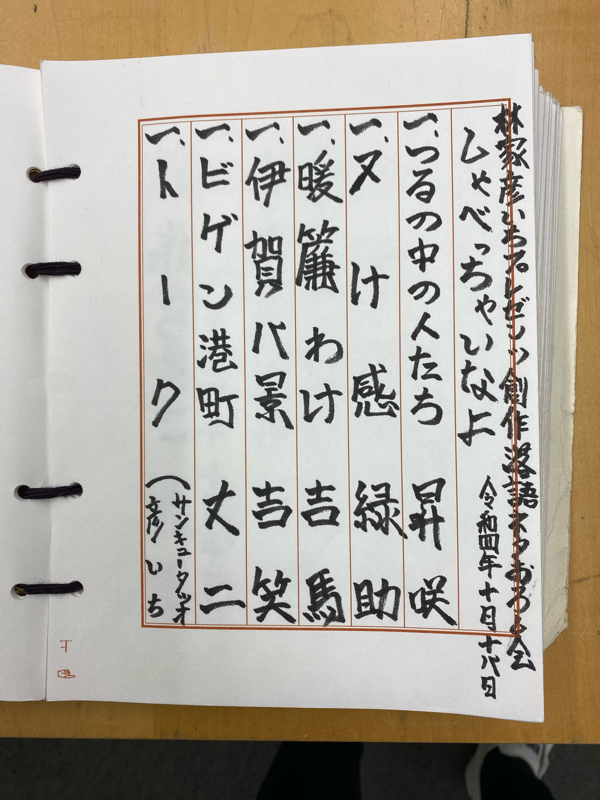 林家彦いちプレゼンツ創作落語ネタおろしの会
しゃべっちゃいなよ 令和四年十月十八日
一、つるの中の人たち 昇咲
一、ヌけ感 緑助
一、暖簾わけ 吉馬
一、伊賀八景 吉笑
一、ビゲン港町 丈二
一、トーク(サンキュータツオ
彦いち